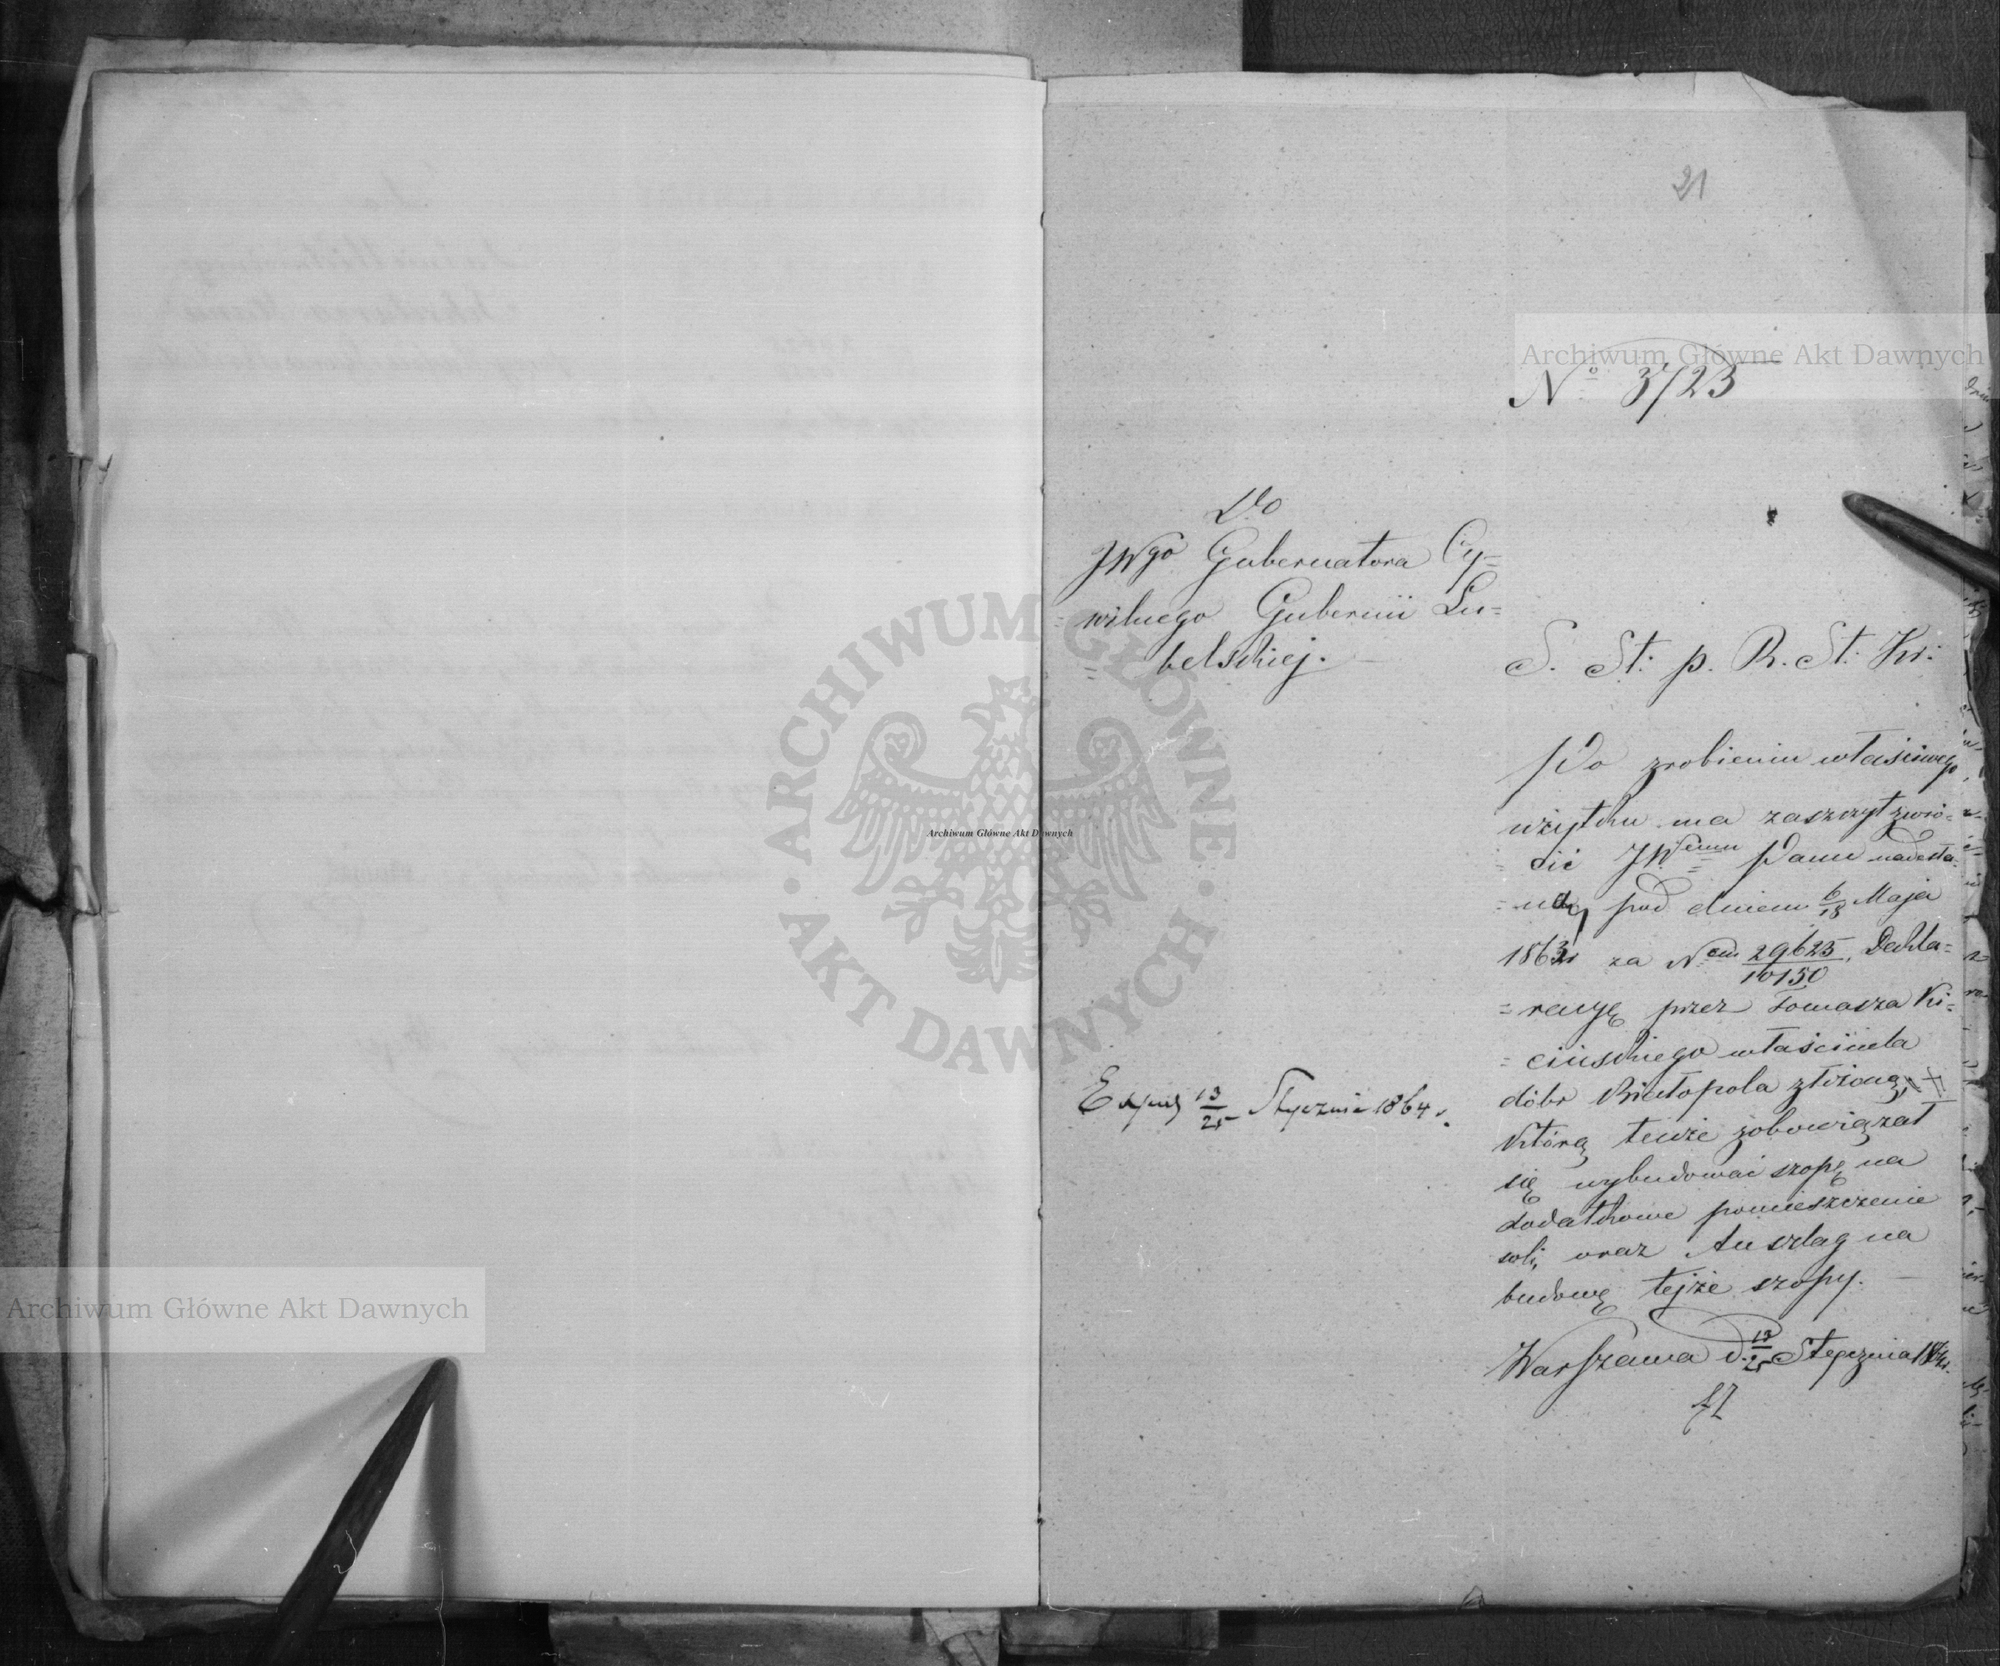 21
Archiwum Główne Akt Dawnych
No 3723
Do
JWgo Gubernatora Cy=
=wilnego Gubernii Lu=
=belskiej.
Exped 13/25 Stycznia 1864 r.
S. St: p. R. St: Kr:
Po zrobieniu właściwego
użytku ma zaszczyt zwró=
=cić JWemu Panu nadesła=
=ną pod dniem 6/18 Maja
1863r za Nem 29625/10150, Dekla=
=racyę przez Tomasza Ki=
=cińskiego właściciela
dóbr Wielopola złożoną,
którą tenże zobowiązał
się wybudować szopę na
dodatkowe pomieszczenie
soli, oraz Anszlag na
budowę tejże szopy.
Warszawa d. 13/25 Stycznia 1864r.
ARCHIWUM GŁÓWNE
AKT DAWNYCH
Archiwum Główne Akt Dawnych
Archiwum Główne Akt Dawnych